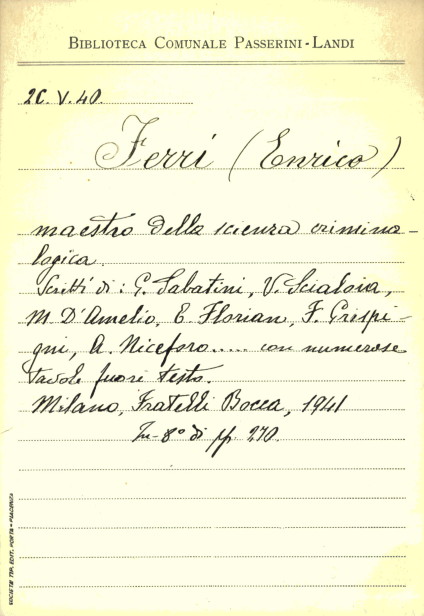 BIBLIOTECA COMUNALE PASSERINI-LANDI
2C. V. 40.
Ferri (Enrico)
maestro della scienza crimino-
logica.
Scritti di: G. Sabatini, V. Scialoia,
M. D'Amelio, E. Florian, F. Grispi-
gni, A. Niceforo..... con numerose
tavole fuori testo.
Milano, Fratelli Bocca, 1941
In-8° di pp. 270.
SOCIETÀ TIP. EDIT. PORTA - PIACENZA